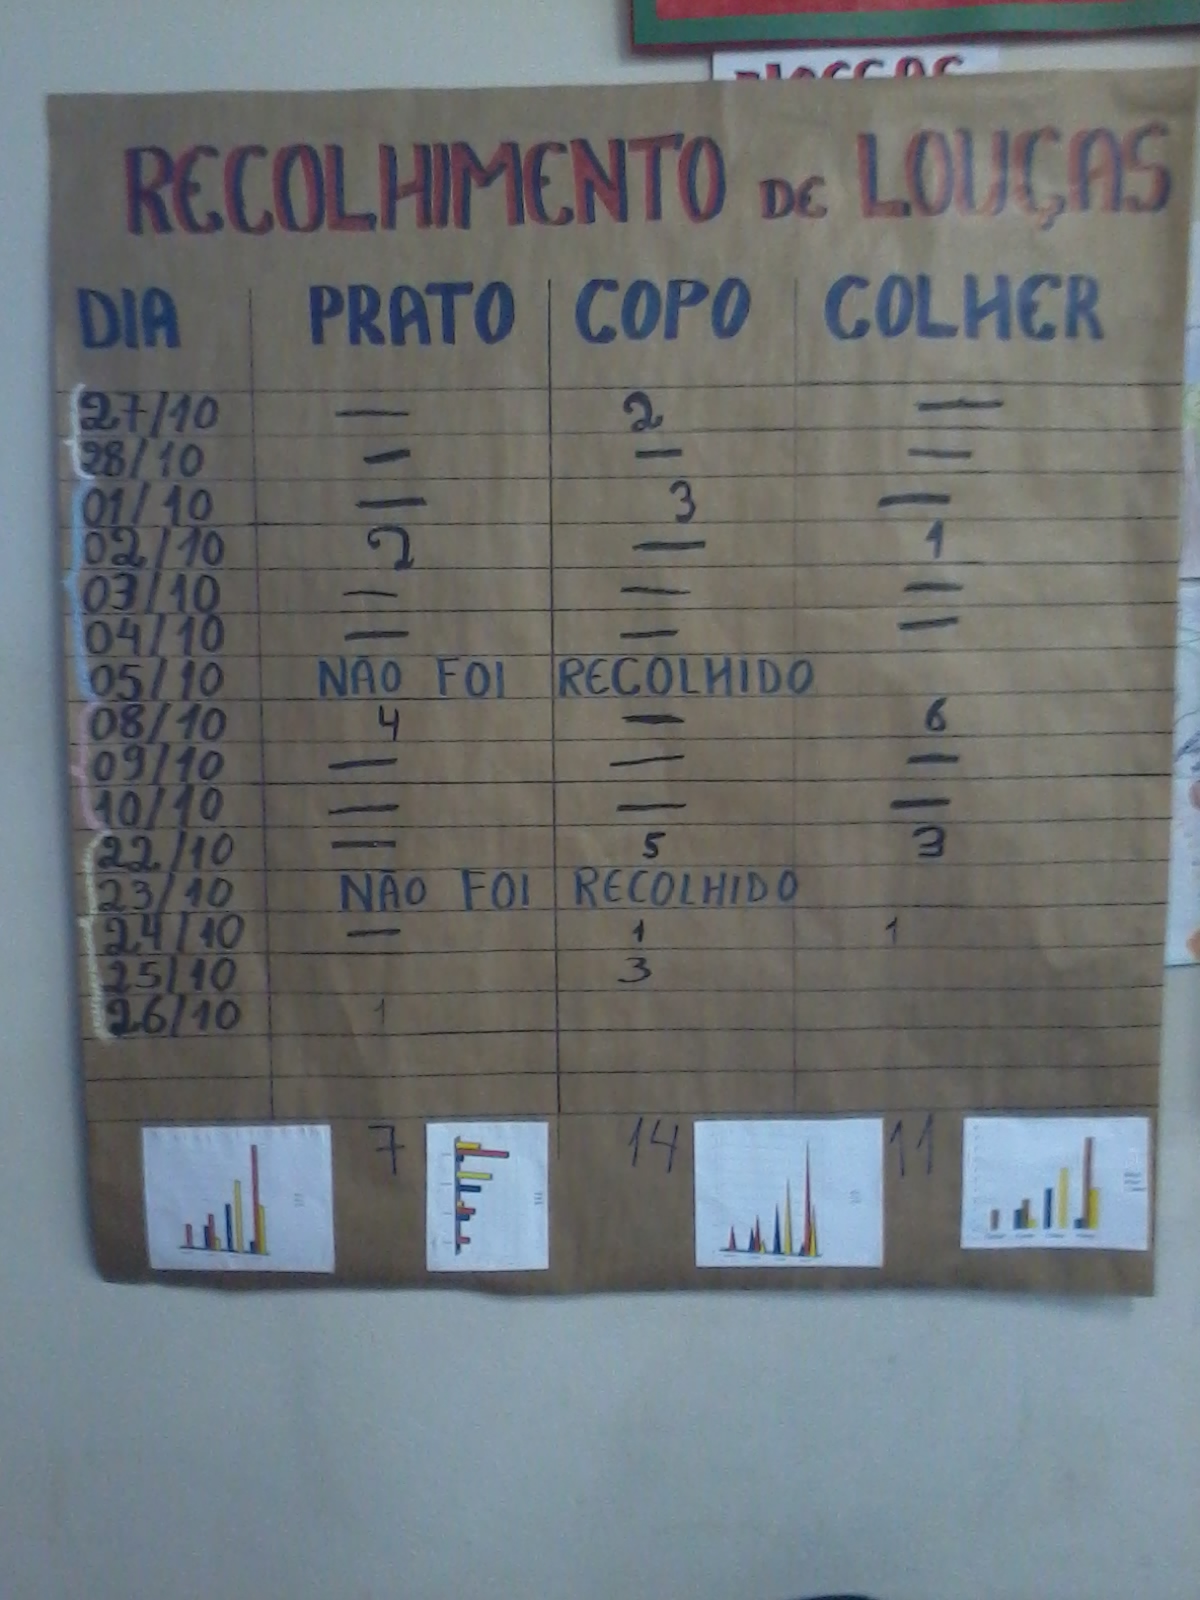 RECOLHIMENTO DE LOUÇAS
DIA PRATO COPO COLHER
27/10 — 2 —
28/10 — — —
01/10 — 3 —
02/10 2 — 1
03/10 — — —
04/10 — — —
05/10 NÃO FOI RECOLHIDO
08/10 4 — 6
09/10 — — —
10/10 — — —
22/10 — 5 3
23/10 NÃO FOI RECOLHIDO
24/10 — 1 1
25/10 3
26/10 1
7 14 11